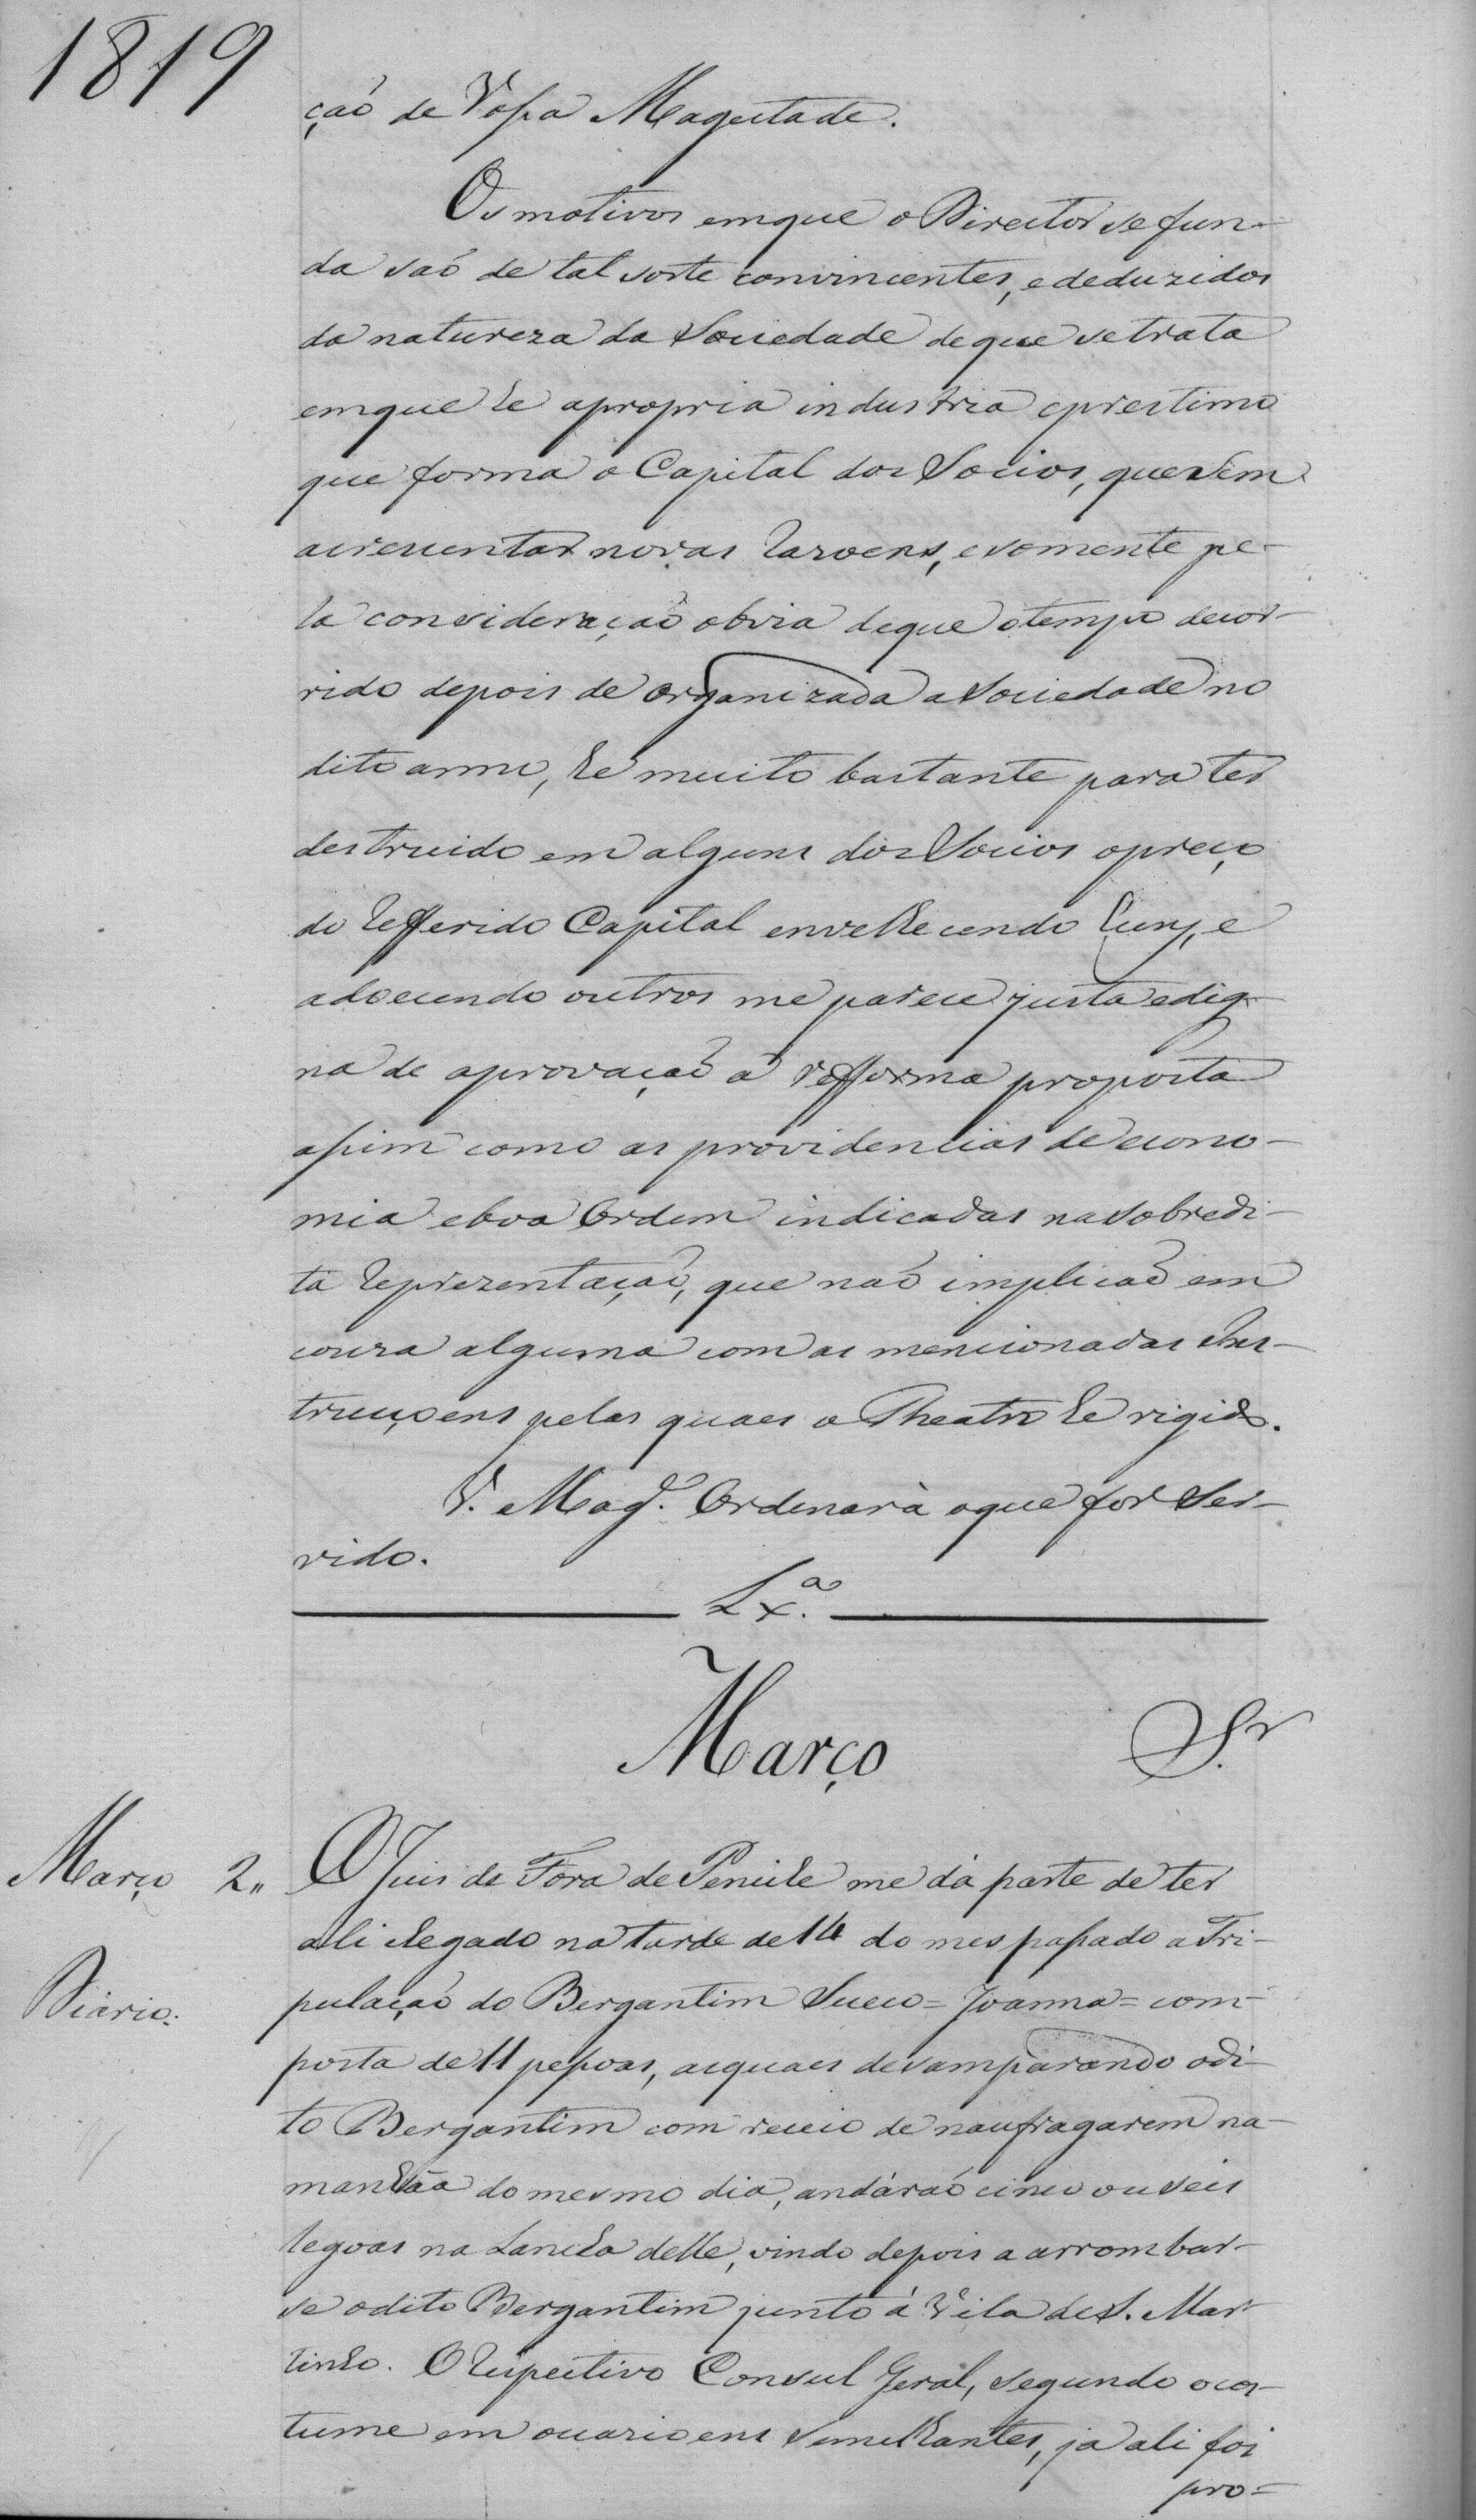 1819
ção de Vossa Magestade.
Os motivos emque o Director se fun-
da saõ de tal sorte convincentes, e deduzidos
da natureza da Sociedade deque se trata
emque he apropria industria eprestimo
que forma o Capital dos Socios, que sem
acrescentar novas razoens, esomente pe-
la consideraçaõ obvia deque otempo decor-
rido depois de organizada a Sociedade no
dito anno, he muito bastante para ter
destruido em alguns dos Socios opreço
do refferido Capital envelhecendo huns, e
adoecendo outros me parece justa edig-
na de aprovaçaõ a refforma proposta
assim como as providencias de econo-
mia eboa Ordem indicadas na Sobredi-
ta reprezentaçaõ, que naõ implicaõ em
couza alguma com as mencionadas Ins-
trucçoens pelas quaes o Theatro he rigido.
V. Mag.e Ordenarà oque for Ser-
vido.
Lx.a
Março
S.r
Março 2..
Diario.
O Juis de Fora de Peniche me dá parte de ter
ali chegado na tarde de 14 do mes passado a Tri-
pulaçaõ do Bergantim Sueco = Joanna = com-
posta de 11 pessoas, asquaes desamparando odi-
to Bergantim com receio de naufragarem na
manhãa do mesmo dia, andáraõ cinco ou seis
legoas na Lancha delle, vindo depois a arrombar-
se odito Bergantim junto á Vila de S. Mar-
tinho. O respectivo Consul Geral, segundo ocos-
tume em ocazioens semelhantes, ja ali foi
pro=